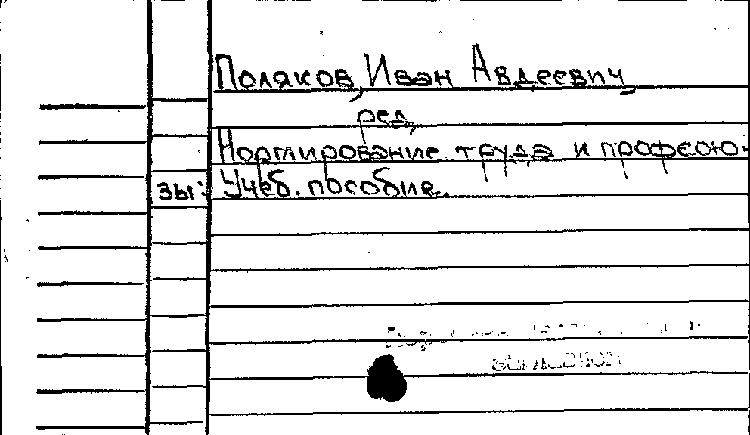 Поляков, Иван Авдеевич,
ред.
Нормирование труда и профсою-
зы: Учеб. пособие.